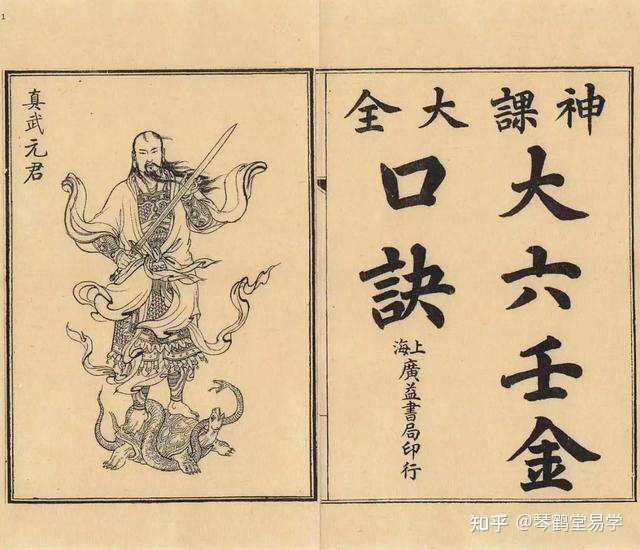 1
神課大全
大六壬金
口訣
上海
廣益書局印行
真武元君
知乎 @琴鹤堂易学